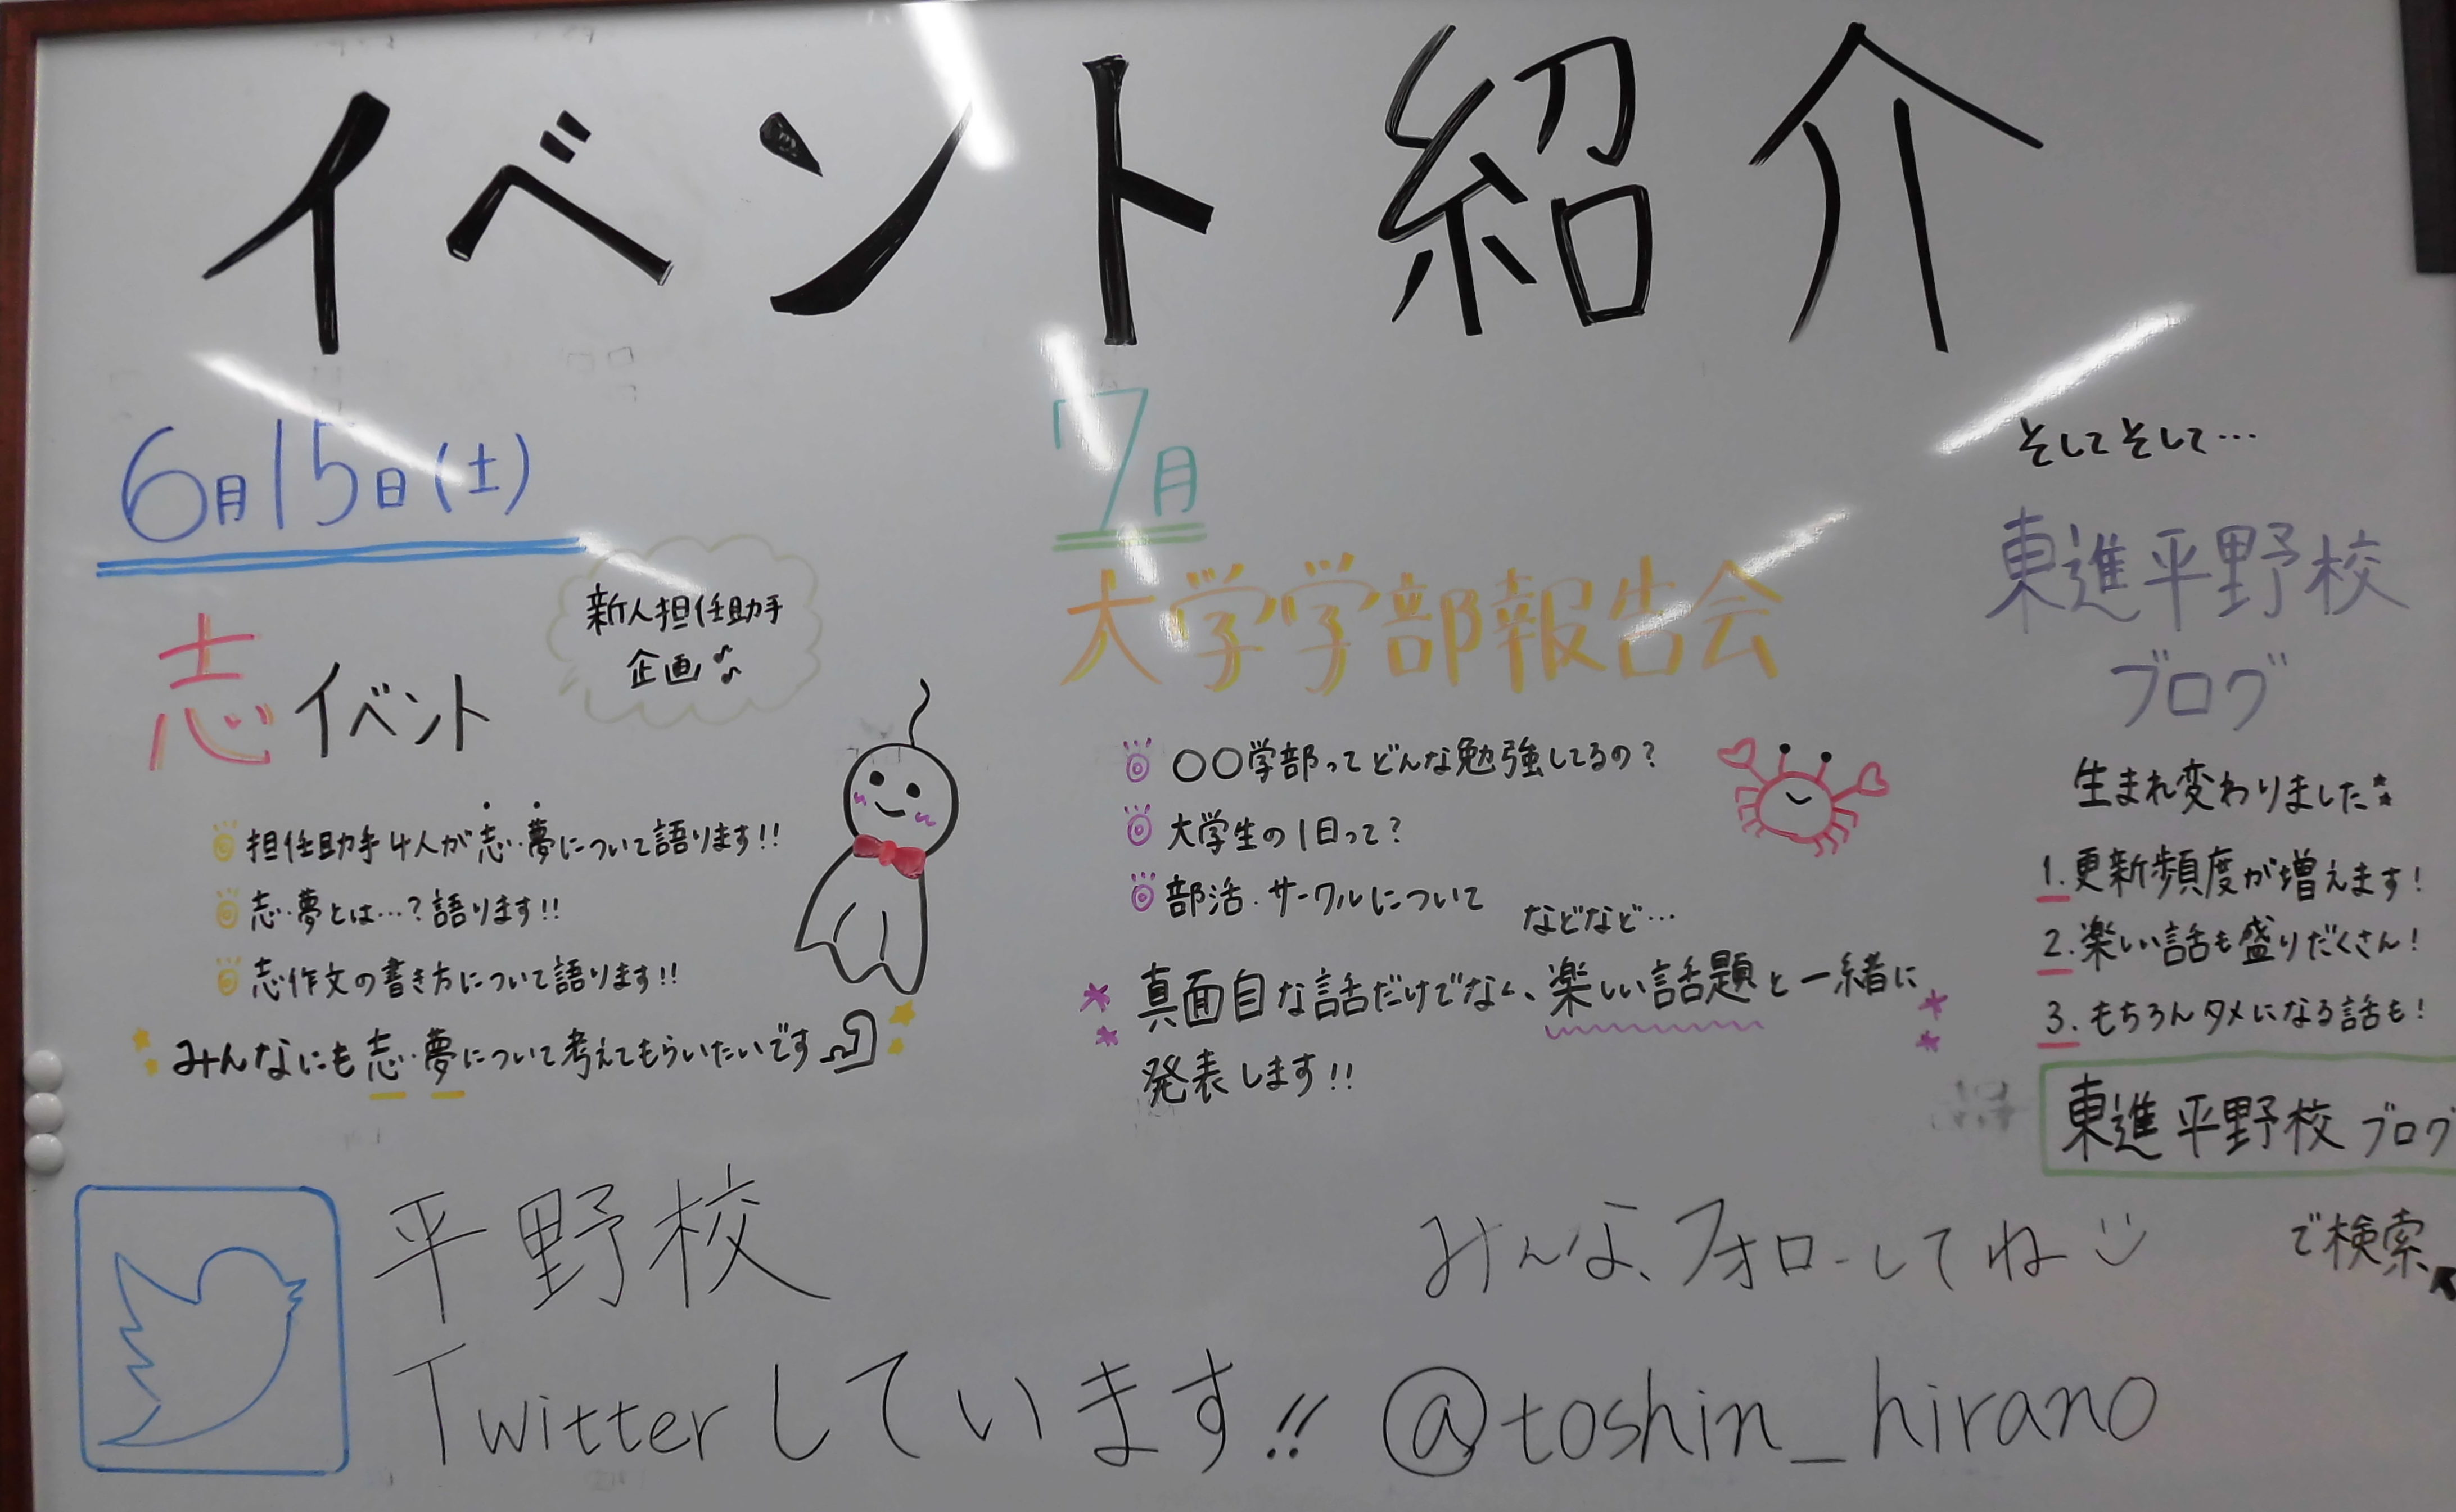 イベント紹介
6月15日(土)
新人担任助手
企画♪
志イベント
担任助手4人が志・夢について語ります!!
志・夢とは…?語ります!!
志作文の書き方について語ります!!
みんなにも志・夢について考えてもらいたいです
7月
大学学部報告会
〇〇学部ってどんな勉強してるの?
大学生の1日って?
部活・サークルについて
などなど…
真面目な話だけでなく、楽しい話題と一緒に
発表します!!
そしてそして…
東進平野校
ブログ
生まれ変わりました
1.更新頻度が増えます!
2.楽しい話も盛りだくさん!
3.もちろんタメになる話も!
東進平野校ブログ
で検索
平野校
Twitterしています!!
みんな、フォローしてね
@toshin_hirano